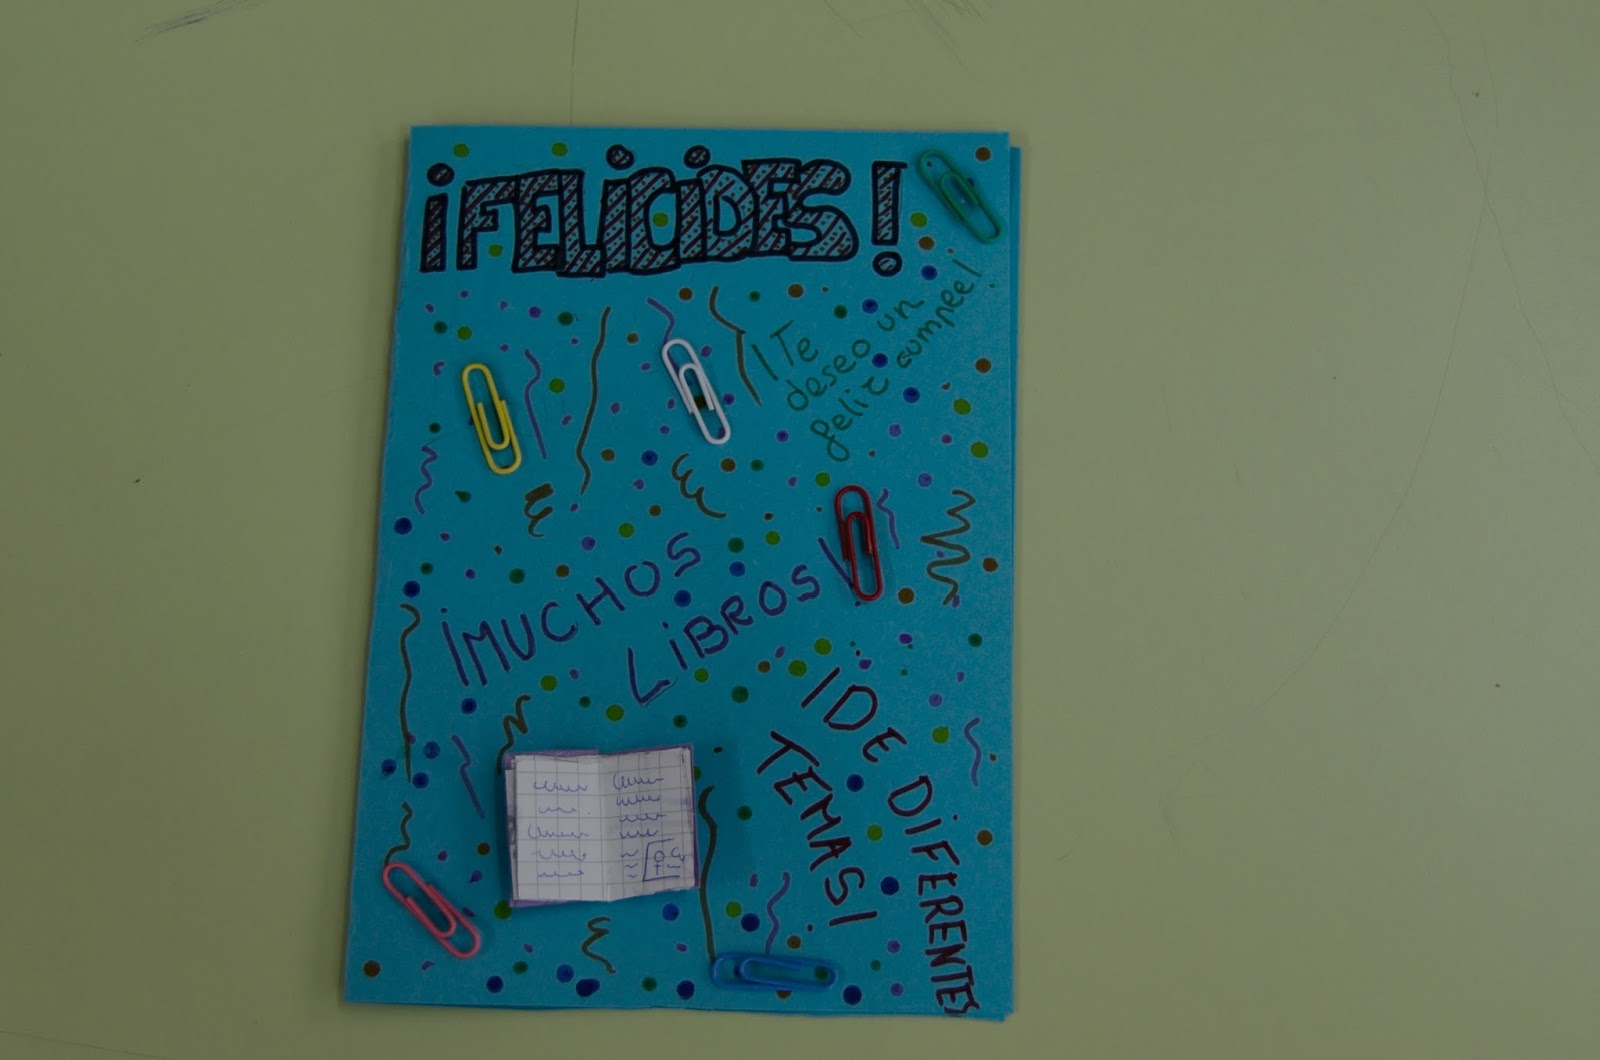 ¡FELICIDES!
¡Te
deseo un
feliz cumpee!
¡MUCHOS
LiBROS!
¡DE DiFERENTES
TEMAS!